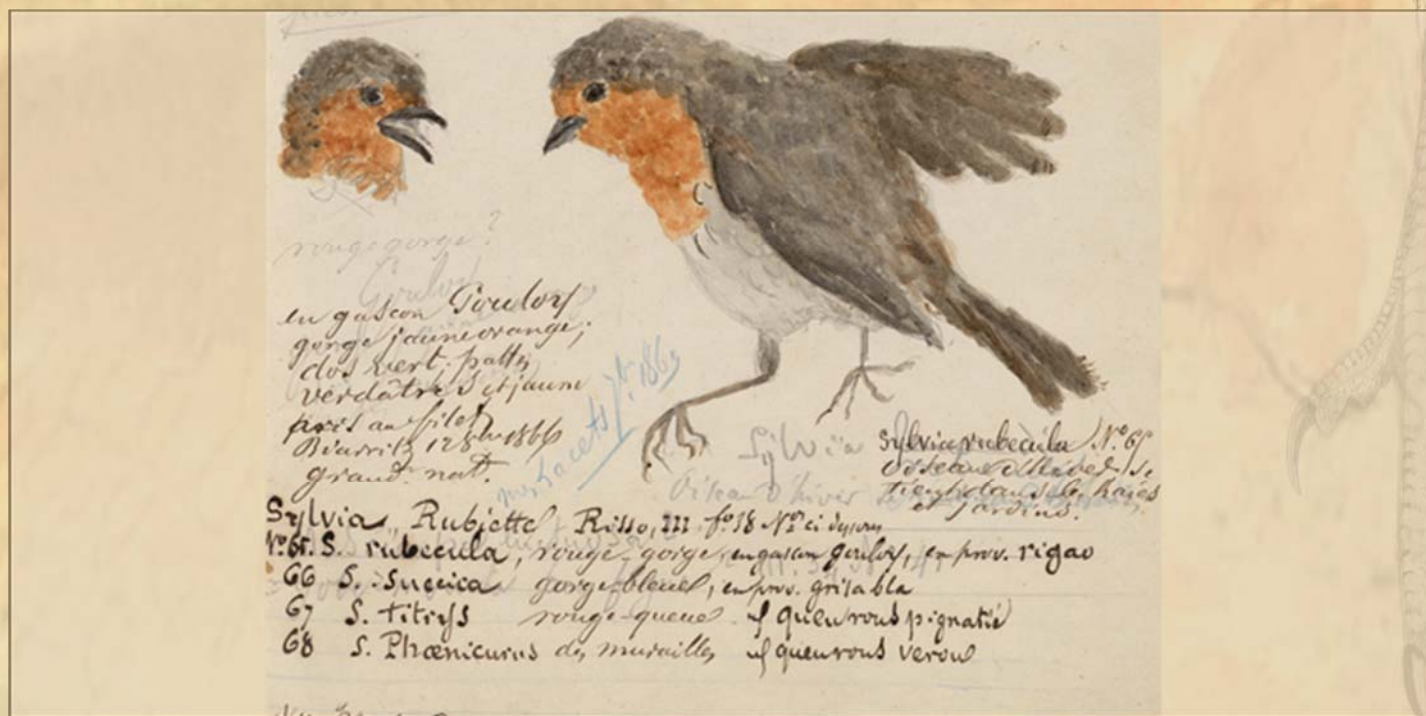 rouge gorge?
en gascon
gorge jaune orange;
dos vert; pattes
verdâtres et jaune
pris au filet
Biarritz 12 8bre 1866
grand. nat.
Sylvia
Oiseau d'hiver
Sylvia rubecula N.° 65
oiseau d'hiver. se
tient dans les haies
et jardins.
Sylvia Rubiette Risso, III f.° 18 N.os ci dessous
N.° 65. S. rubecula, rouge-gorge, en gascon en prov. rigao
66 S. suecica gorge-bleue, en prov. grisa bla
67 S. titys rouge-queue queu rous pignatié
68 S. Phœnicurus des murailles queu rous